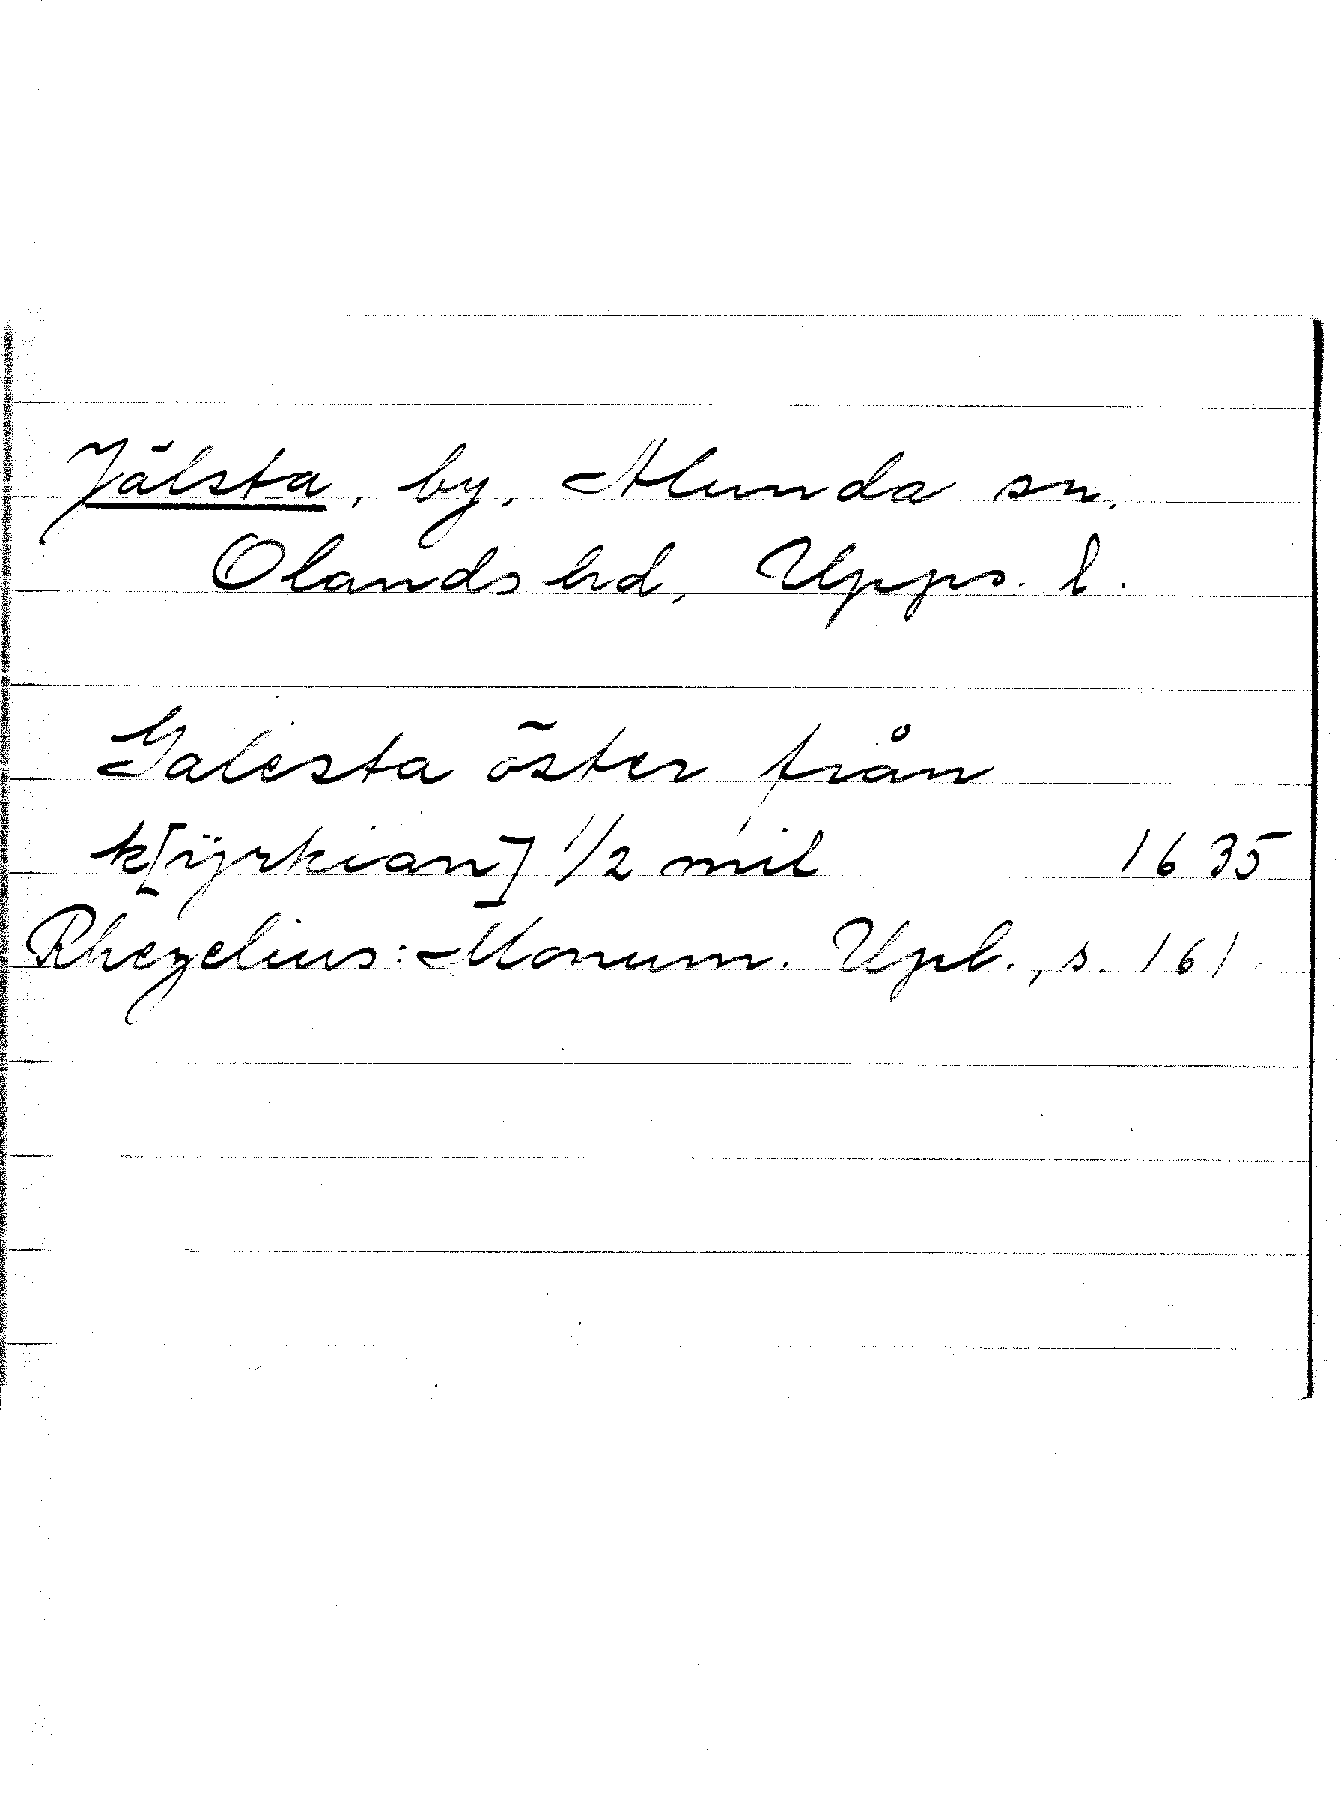 Jälsta, by, Alunda sn.
Olands hd, Upps. l.
Galesta öster från
k[ÿrkian] 1/2 mil 1635
Rhezelius: Monum. Upl., s. 161